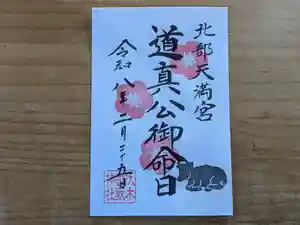 北部天満宮
道真公御命日
令和八年二月二十五日